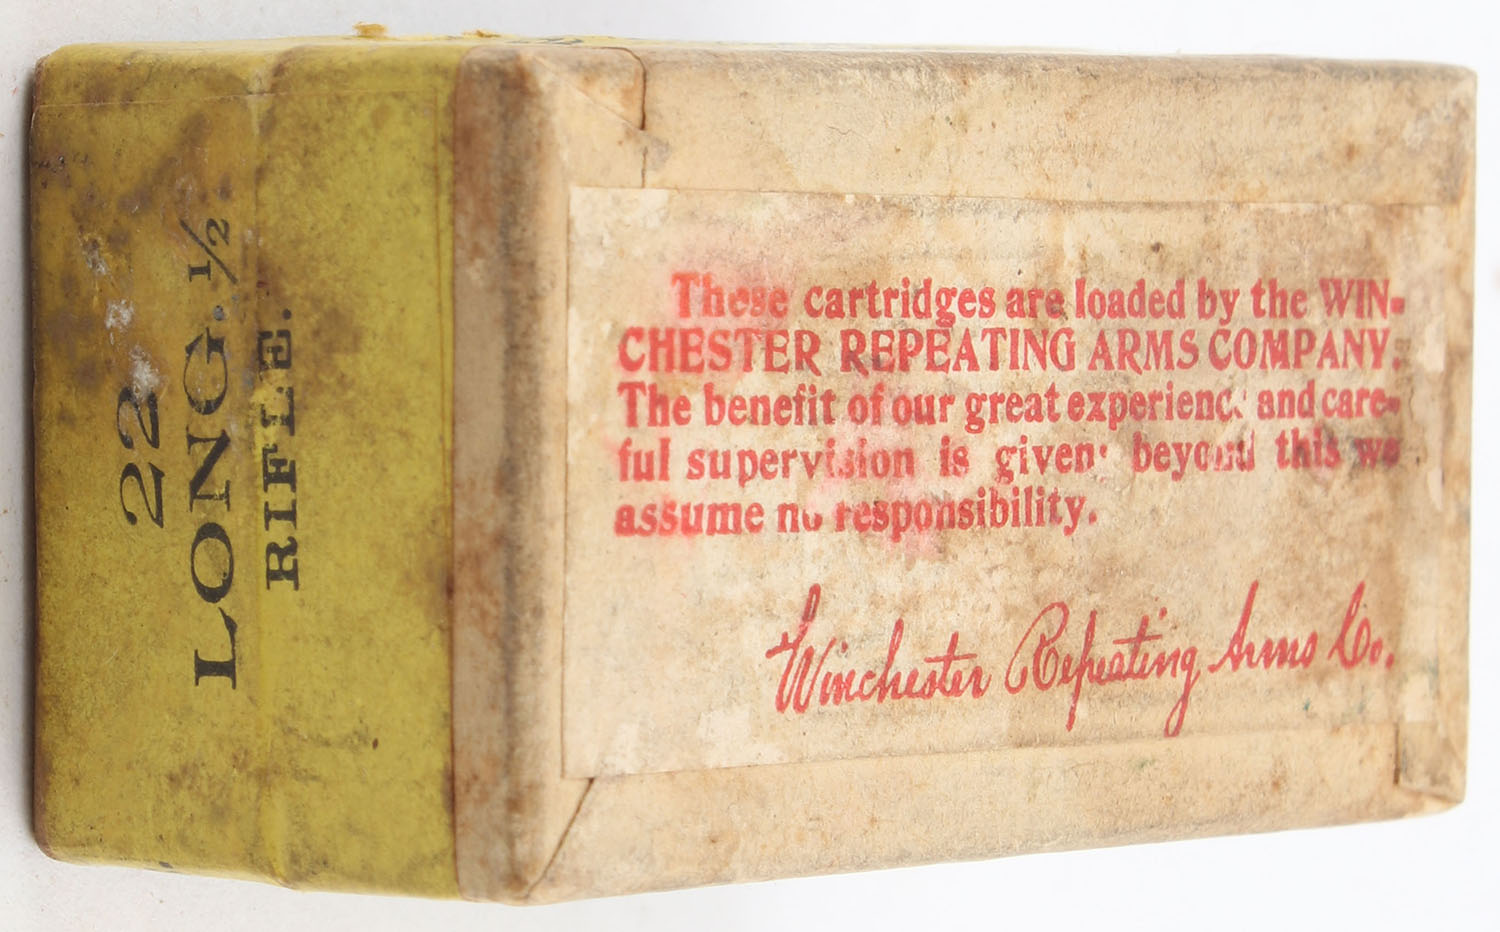 22
LONG.½
RIFLE.
These cartridges are loaded by the WIN-
CHESTER REPEATING ARMS COMPANY.
The benefit of our great experience and care-
ful supervision is given; beyond this we
assume no responsibility.
Winchester Repeating Arms Co.